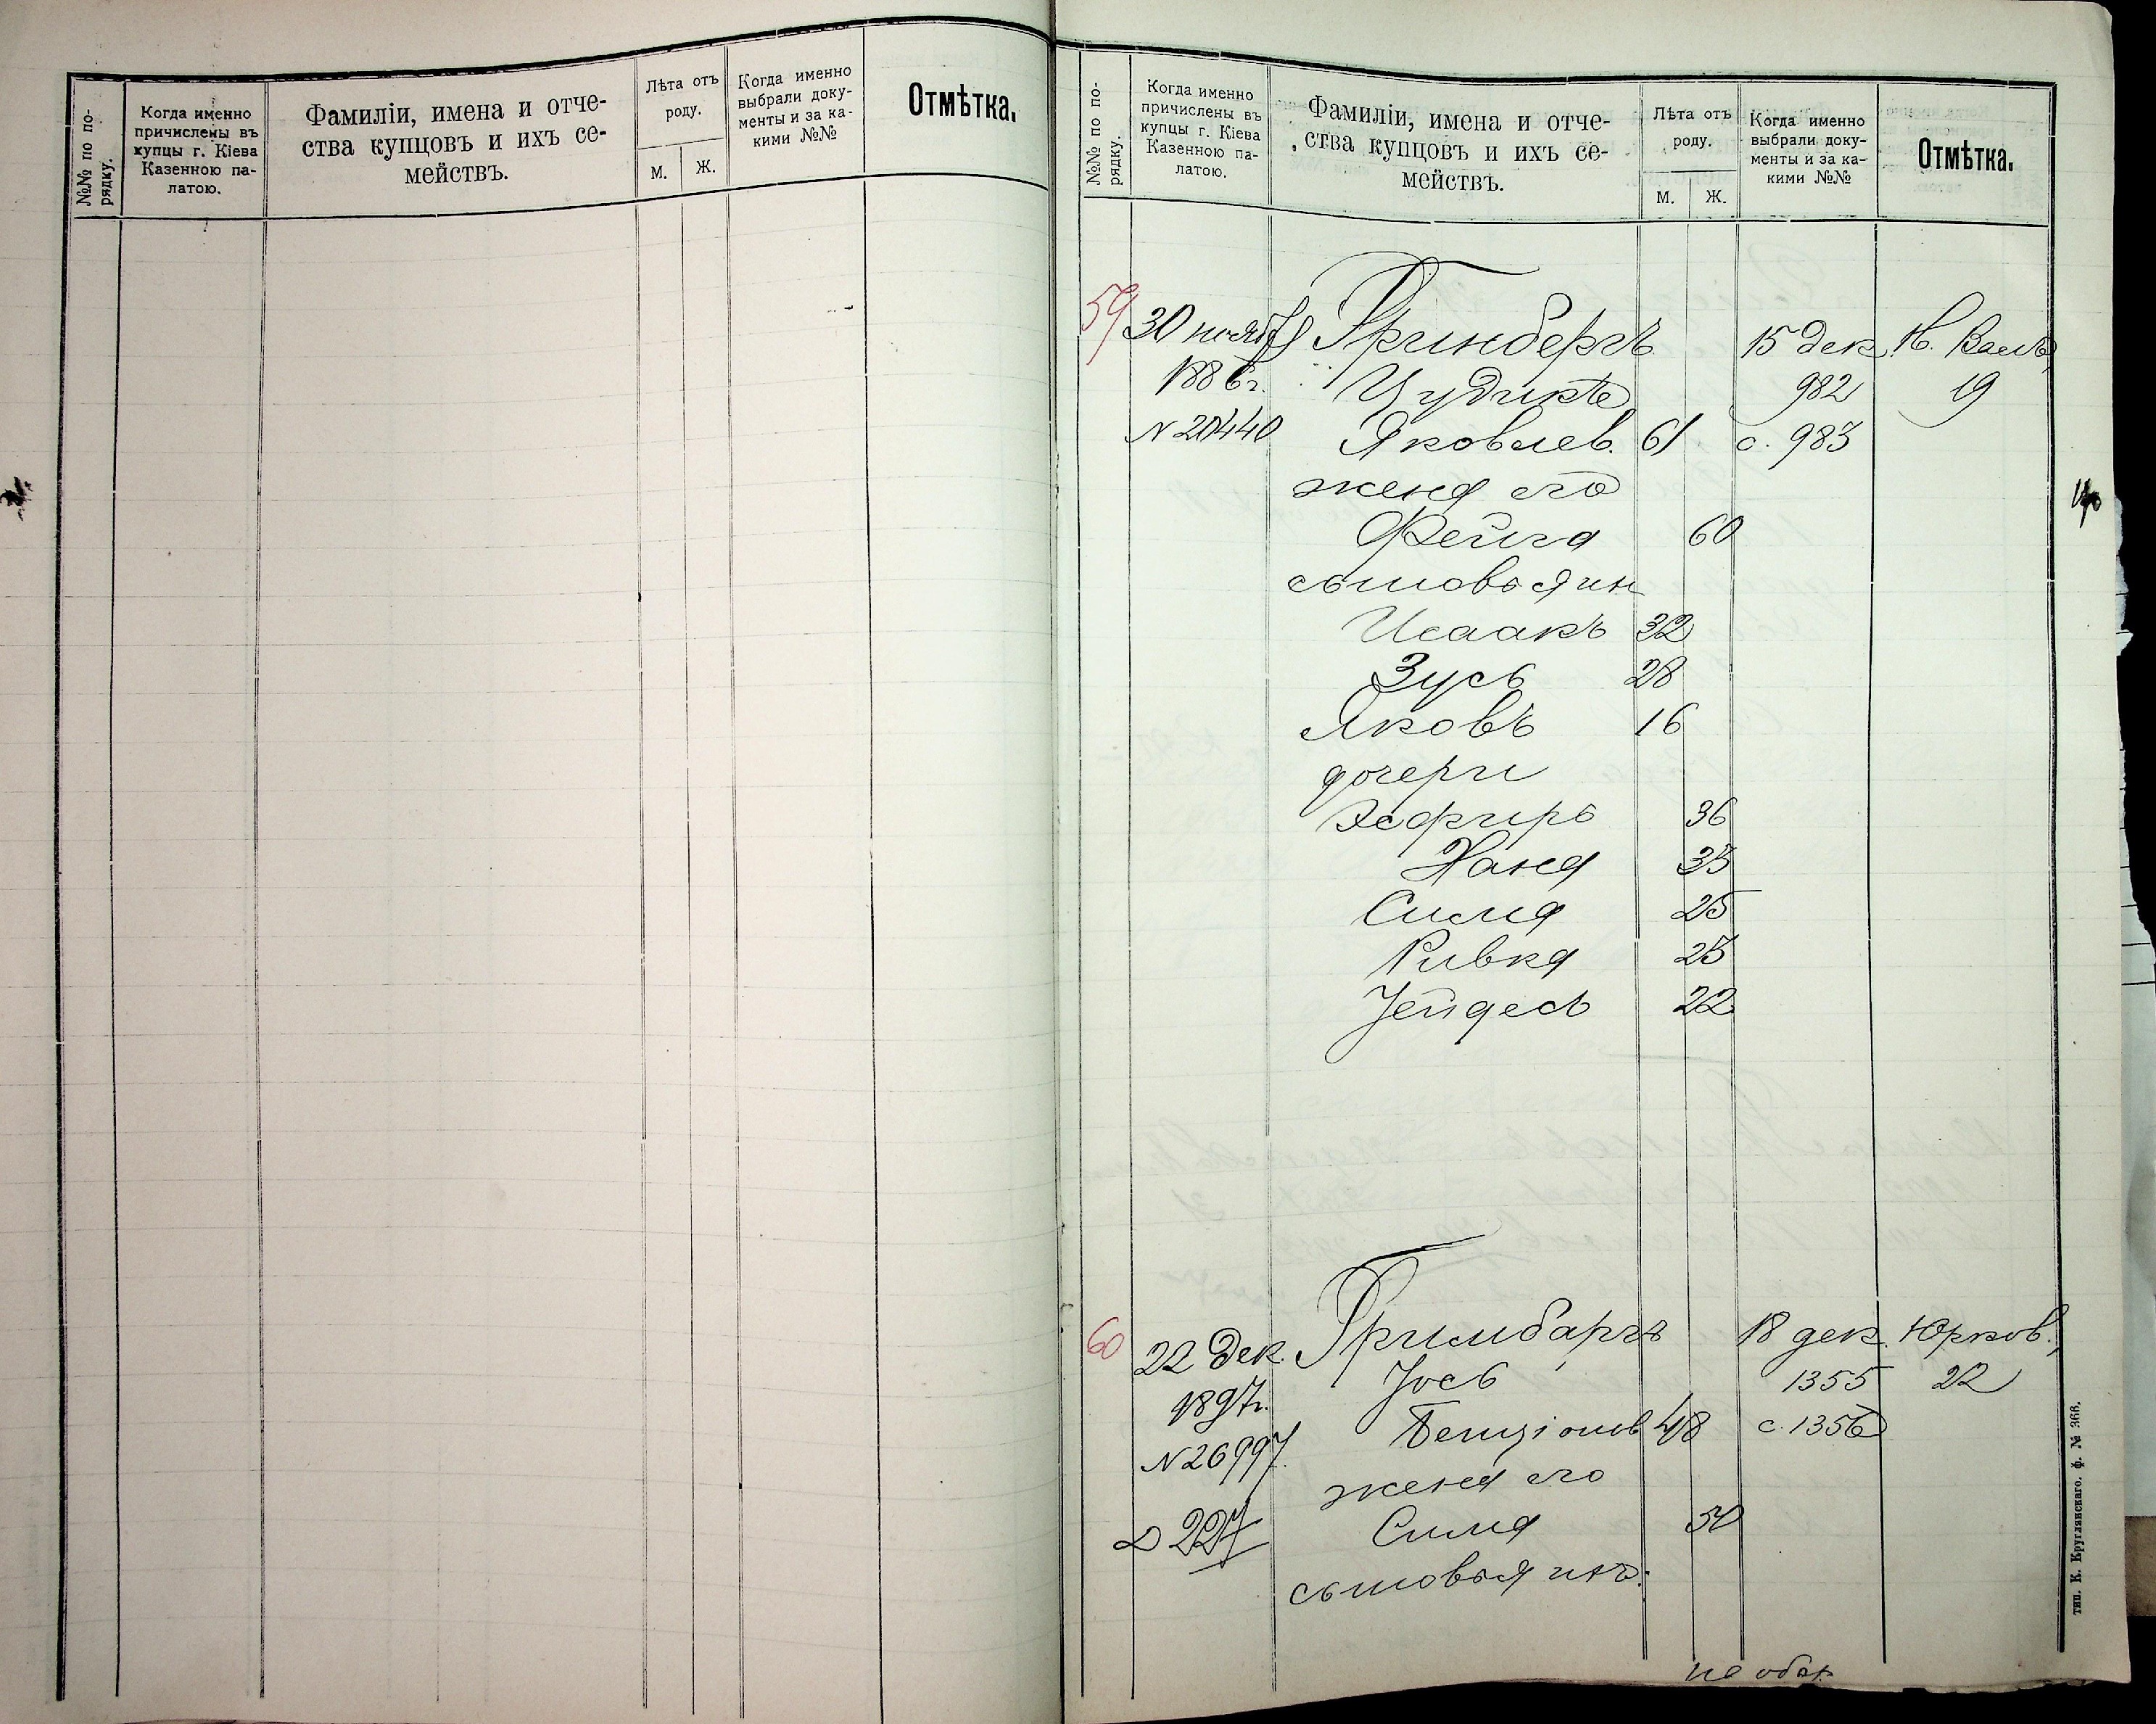 №№ по по-
рядку.
Когда именно
причислены въ
купцы г. Кіева
Казенною па-
латою.
Фамиліи, имена и отче-
ства купцовъ и ихъ се-
мействъ.
Лѣта отъ
роду.
М.
Ж.
Когда именно
выбрали доку-
менты и за ка-
кими №№
Отмѣтка.
№№ по по-
рядку.
Когда именно
причислены въ
купцы г. Кіева
Казенною па-
латою.
Фамиліи, имена и отче-
ства купцовъ и ихъ се-
мействъ.
Лѣта отъ
роду.
М.
Ж.
Когда именно
выбрали доку-
менты и за ка-
кими №№
Отмѣтка.
59 30 ноября Гринбергъ 15 дек. Н. Валъ,
1886 г. 982 19
N 20440 Яковлев. 61 с. 983
жена его
Фейга 60
сыновья ихъ
Исаакъ 32
Зусь 28
Яковъ 16
дочери
Эсфирь 36
Хана 33
Сима 25
Ривка 23
Іейдесъ 22
60 22 Дек. Гримбаргъ 18 дек. Юрков.,
1897г. Іось 1355 22
N 26997. Бенціонов 48 с. 1356
жена его
227 Сима 50
сыновья ихъ:
на обор.
тип. К. Круглянскаго. ф. № 366.